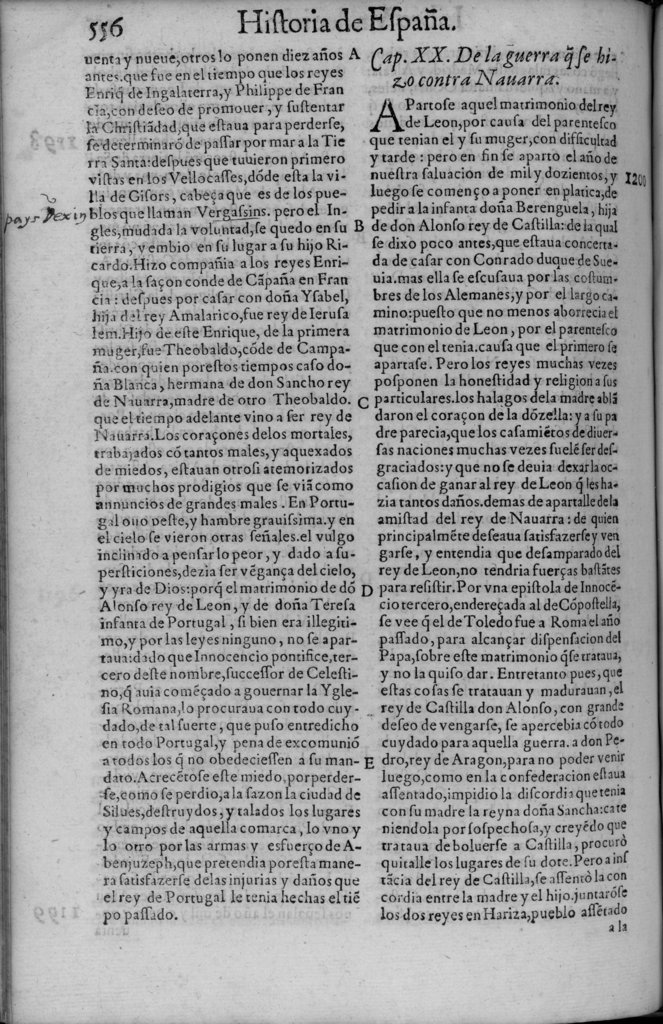 556
Historia de España.
uenta y nueue, otros lo ponen diez años A
antes. que fue en el tiempo que los reyes
Enriq̃ de Ingalaterra, y Philippe de Fran
cia, con deseo de promouer, y sustentar
la Christiãdad, que estaua para perderse,
se determinaró de passar por mar a la Tie
rra Santa: despues que tuuieron primero
vistas en los Vellocasses, dóde esta la vi-
lla de Gisors, cabeça que es de los pue-
blos que llaman Vergassins. pero el In-
pays Vexin
gles, mudada la voluntad, se quedo en su B
tierra, y embio en su lugar a su hijo Ri-
cardo. Hizo compañia a los reyes Enri-
que, a la façon conde de Cãpaña en Fran
cia: despues por casar con doña Ysabel,
hija del rey Amalarico, fue rey de Ierusa
lem. Hijo de este Enrique, de la primera
muger, fue Theobaldo, códe de Campa-
ña. con quien porestos tiempos caso do-
ña Blanca, hermana de don Sancho rey
de Nauarra, madre de otro Theobaldo. C
que el tiempo adelante vino a ser rey de
Nauarra. Los coraçones delos mortales,
trabajados có tantos males, y aquexados
de miedos, estauan otrosi atemorizados
por muchos prodigios que se viã como
annuncios de grandes males. En Portu-
gal ouo peste, y hambre grauissima. y en
el cielo se vieron otras señales. el vulgo
inclinado a pensar lo peor, y dado a su-
persticiones, dezia ser vẽgança del cielo,
y yra de Dios: porq̃ el matrimonio de dó D
Alonso rey de Leon, y de doña Teresa
infanta de Portugal, si bien era illegiti-
mo, y por las leyes ninguno, no se apar-
taua: dado que Innocencio pontifice, ter-
cero deste nombre, successor de Celesti-
no, q̃ auia coméçado a gouernar la Ygle-
sia Romana, lo procuraua con todo cuy-
dado, de tal suerte, que puso entredicho
en todo Portugal, y pena de excomunió
a todos los q̃ no obedeciessen a su man- E
dato. Acrecétose este miedo, porperder-
se, como se perdio, a la sazon la ciudad de
Silues, destruydos, y talados los lugares
y campos de aquella comarca, lo vno y
lo otro por las armas y esfuerço de A-
benjuzeph, que pretendia poresta mane-
ra satisfazerse delas injurias y daños que
el rey de Portugal le tenia hechas el tié
po passado.
Cap. XX. De la guerra q̃ se hi-
zo contra Nauarra.
APartose aquel matrimonio del rey
de Leon, por causa del parentesco
que tenian el y su muger, con difficultad
y tarde: pero en fin se aparto el año de
nuestra saluacion de mil y dozientos, y 1200
luego se començo a poner en platica, de
pedir a la infanta doña Berenguela, hija
de don Alonso rey de Castilla: de la qual
se dixo poco antes, que estaua concerta-
da de casar con Conrado duque de Sue-
uia. mas ella se escusaua por las costum-
bres de los Alemanes, y por el largo ca-
mino: puesto que no menos aborrecia el
matrimonio de Leon, por el parentesco
que con el tenia. causa que el primero se
apartase. Pero los reyes muchas vezes
posponen la honestidad y religion a sus
particulares. los halagos dela madre ablã
daron el coraçon de la dózella: y a su pa
dre parecia, que los casamiẽtos de diuer-
sas naciones muchas vezes suelé ser des-
graciados: y que no se deuia dexar la oc-
casion de ganar al rey de Leon q̃ les ha-
zia tantos daños. demas de apartalle de la
amistad del rey de Nauarra: de quien
principalméte deseaua satisfazerse y ven
garse, y entendia que desamparado del
rey de Leon, no tendria fuerças bastátes
para resistir. Por vna epistola de Innocé-
cio tercero, endereçada al de Cópostella,
se vee q̃ el de Toledo fue a Roma el año
passado, para alcançar dispensacion del
Papa, sobre este matrimonio q̃ se trataua,
y no la quiso dar. Entretanto pues, que
estas cosas se tratauan y madurauan, el
rey de Castilla don Alonso, con grande
deseo de vengarse, se apercebia có todo
cuydado para aquella guerra. a don Pe-
dro, rey de Aragon, para no poder venir
luego, como en la confederacion estaua
assentado, impidio la discordia que tenia
con su madre la reyna doña Sancha: cate
niendola por sospechosa, y creyẽdo que
trataua de boluerse a Castilla, procuró
quitalle los lugares de su dote. Pero a ins
tãcia del rey de Castilla, se assentó la con
cordia entre la madre y el hijo. juntaróse
los dos reyes en Hariza, pueblo assẽtado
a la